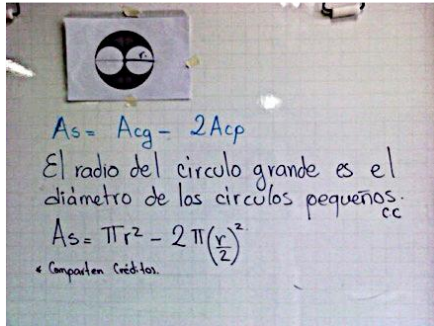 r
As = Acg - 2Acp
El radio del circulo grande es el
diámetro de los circulos pequeños.
cc
As = πr² - 2π(r/2)²
* Comparten Créditos.